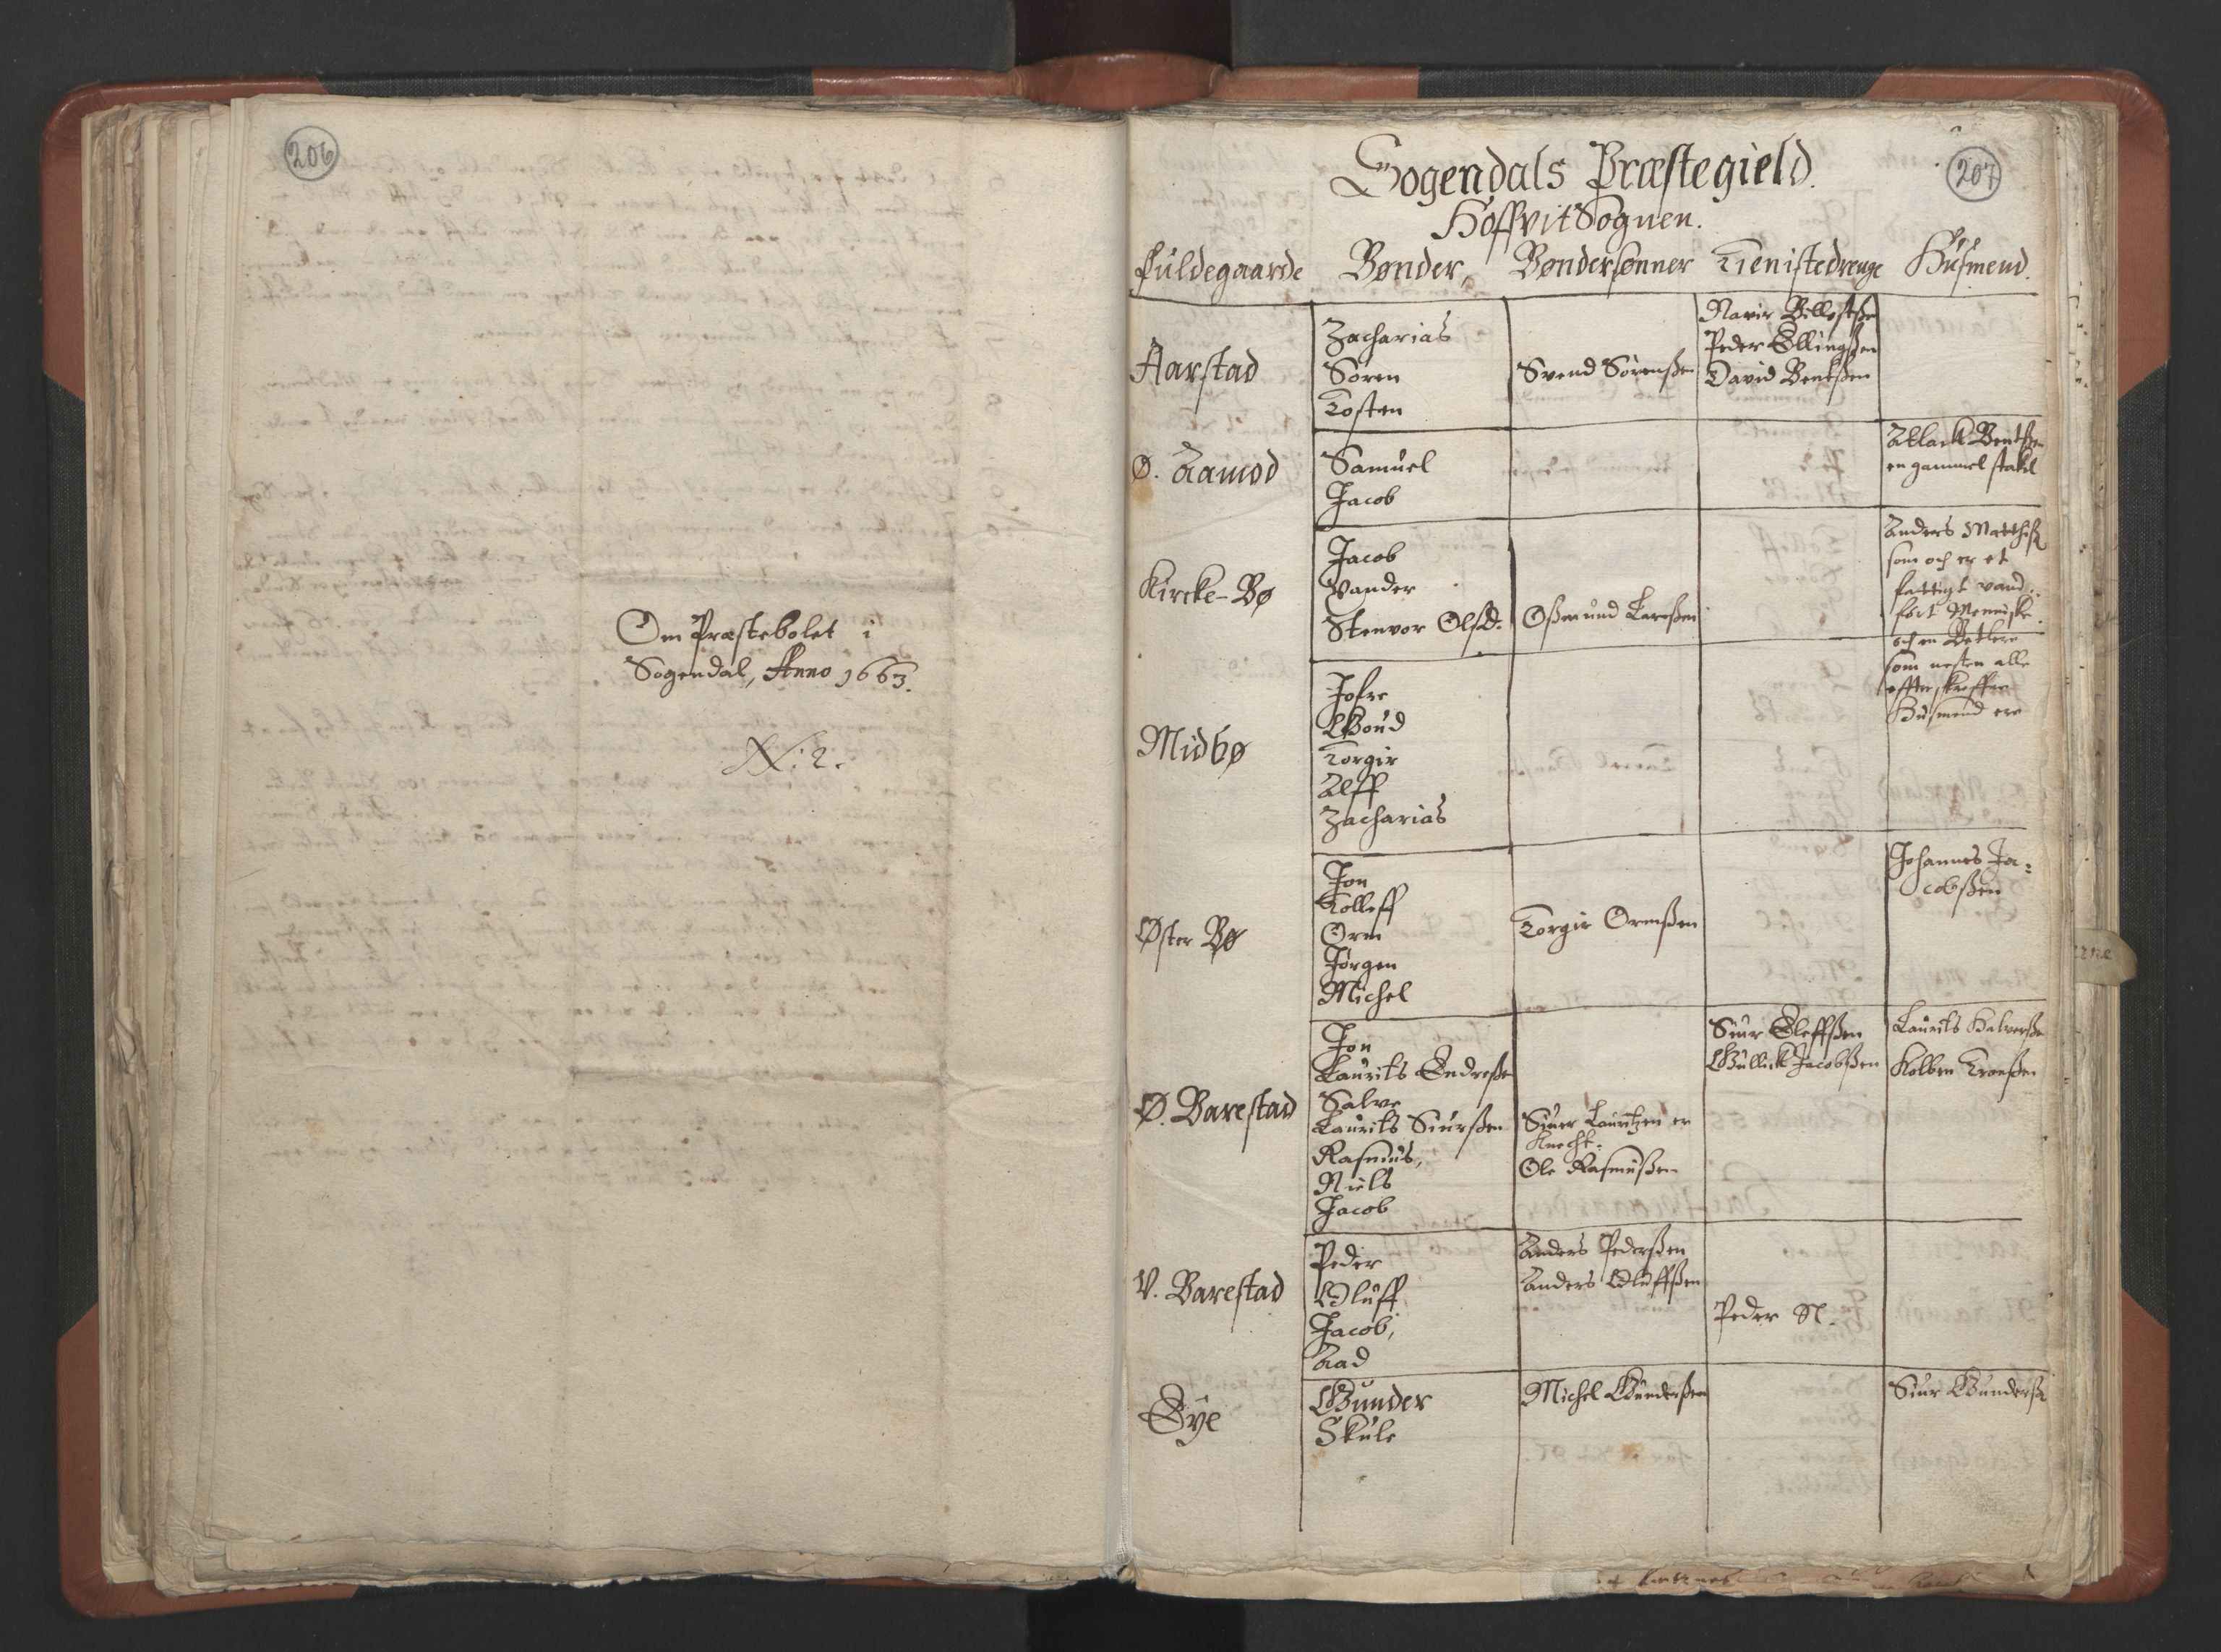 206
Om Præstebolet i
Sogendal, Anno 1663.
N: 2.
207
Sogendals Præstegield.
Hoffvit Sognen.
Fuldegaarde Bønder, Bøndersønner Tienistedrenge Husmend.
Aarstad
Zacharias
Sören
Tosten
Svend Sörenßen
Peder Ellingßen
David Bentßen
Ø. Aamod
Samuel
Jacob
Atlack Bentßen
en gammel stakl
Kircke-Bø
Jacob
Stenvor Olsd:
Oßmund Larßen
Anders Matthiß
som och er et
fattigt vand-
fört Menniske
och en Betlere
som nesten alle
effterskreffne
Husmend ere
Midbø
Tofre
Torgir
Alff
Zacharias
Øster Bø
Jon
Tolleff
Orm
Jörgen
Michel
Torgir Ormßen
Johannes Ja-
cobßen
Ø. Barestad
Jon
Laurits Endreße
Salve
Laurits Siurßen
Rasmus,
Niels
Jacob
Siuer Lauritzen er
Knecht.
Ole Rasmußen
Siur Eleffßen
Gullick Jacobßen
Laurits Halvorße
Kolben Troenßen
V. Barestad
Peder
Oluff
Jacob,
Aad
Anders Pederßen
Anders Oluffßen
Peder N.
Eye
Gunder
Skule
Michel Gunderßen
Siur Gunderß